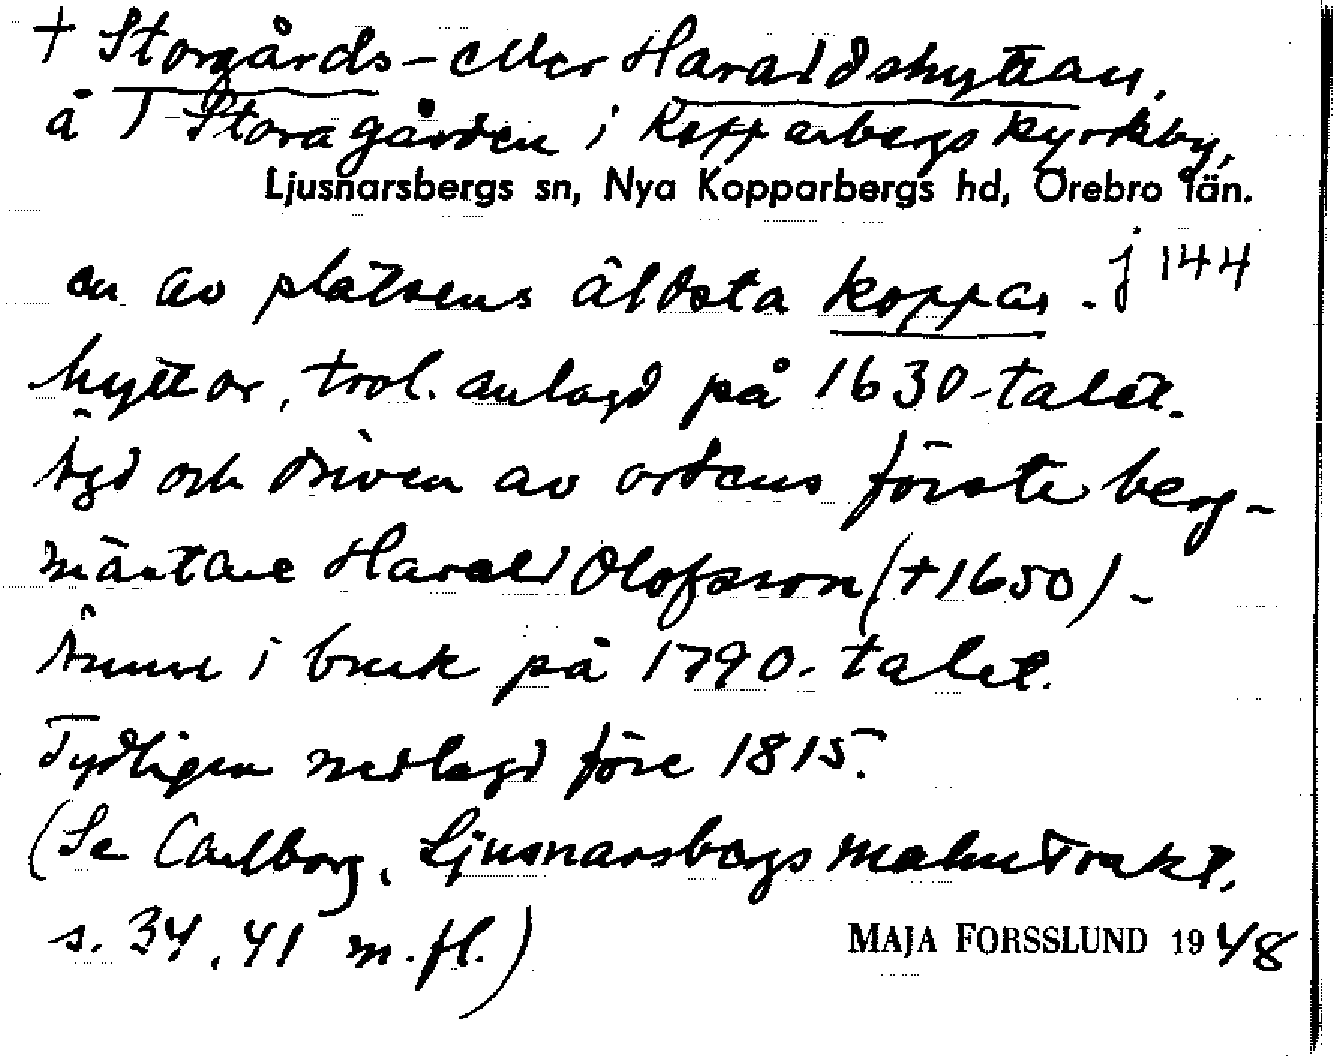 + Storgårds- eller Haraldshyttan,
å Storagården i Kopparbergs kyrkby,
Ljusnarsbergs sn, Nya Kopparbergs hd, Örebro län.
j 144
en av platsens äldsta koppar-
hyttor, trol. anlagd på 1630-talet.
Ägd och driven av ortens förste berg-
mästare Harald Olofsson (+1650) -
Ännu i bruk på 1790-talet.
Tydligen nedlagd före 1815.
(Se Carlborg, Ljusnarsbergs malmtrakt,
s. 34, 41 m.fl.)
MAJA FORSSLUND 1948